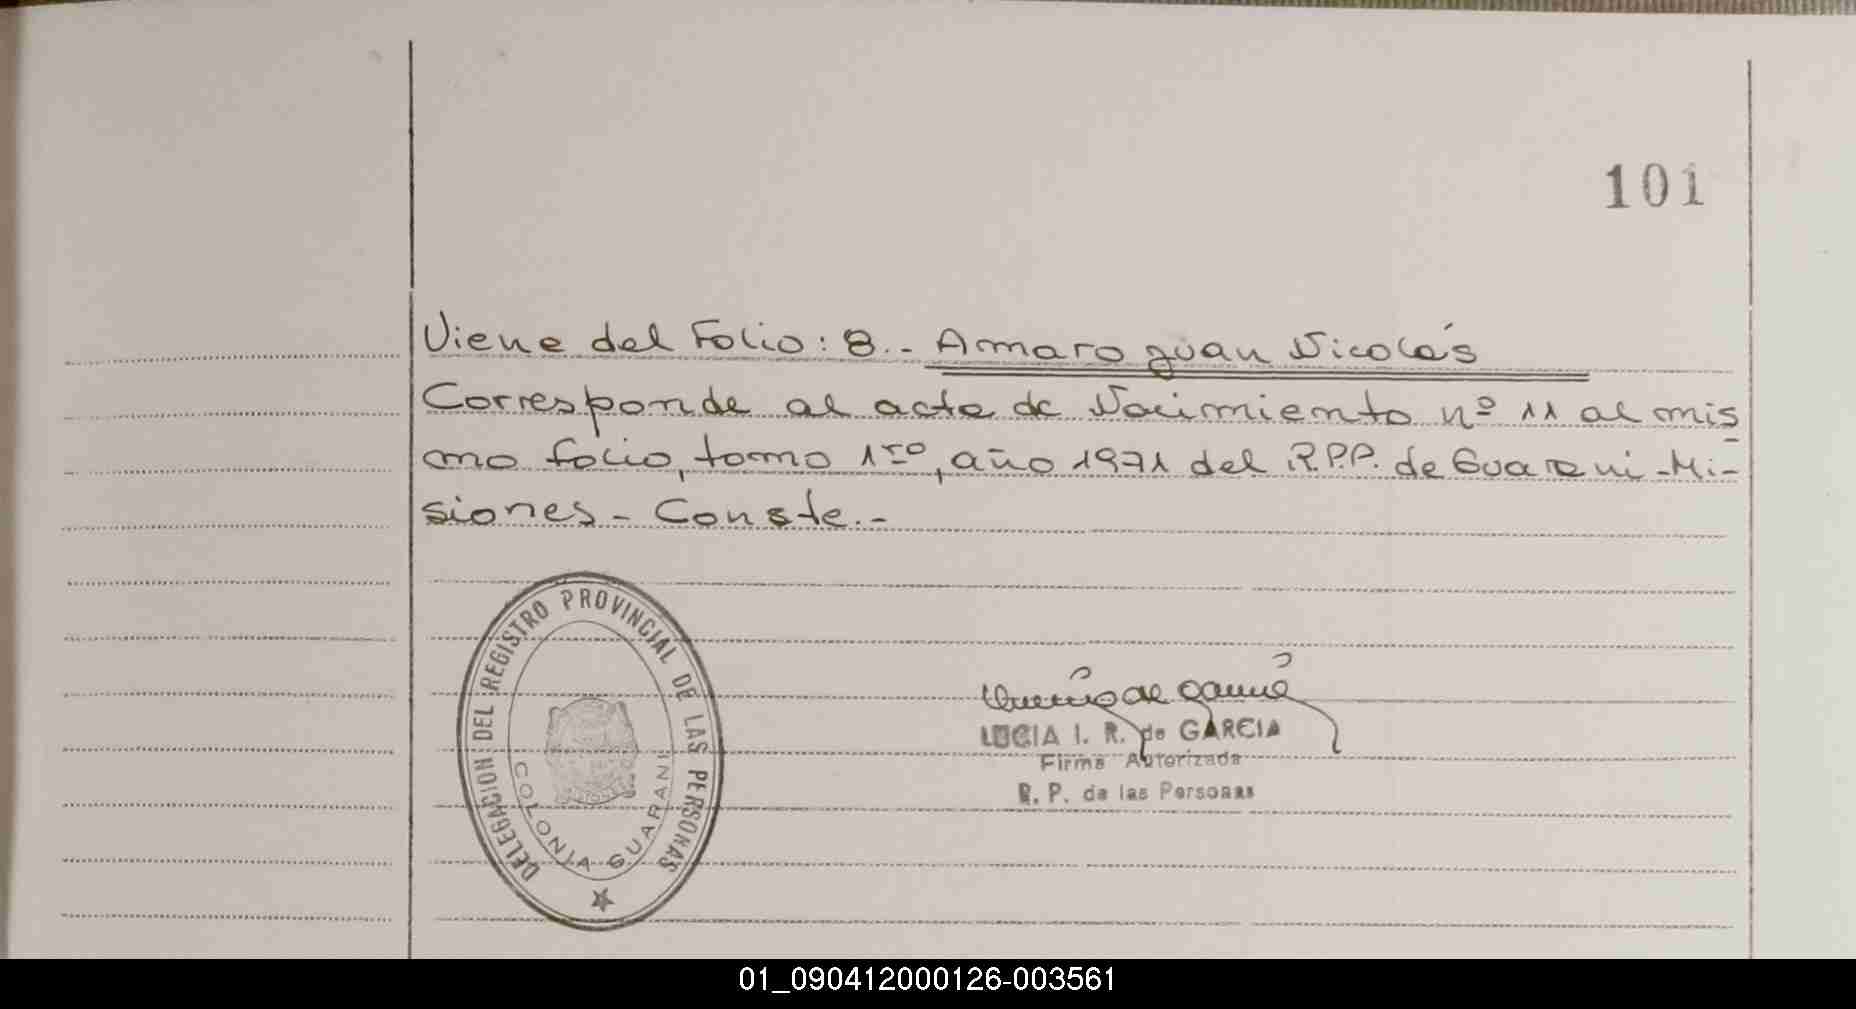 101
Viene del Folio: 8.- Amaro Juan Nicolás
Corresponde al acta de Nacimiento nº 11 al mis
mo folio, tomo 1ro, año 1971 del R.P.P. de Guarani-Mi-
siones- Conste.-
DELEGACION DEL REGISTRO PROVINCIAL DE LAS PERSONAS
COLONIA GUARANI
LUCIA I. R. de GARCIA
Firma Autorizada
R. P. de las Personas
01_090412000126-003561